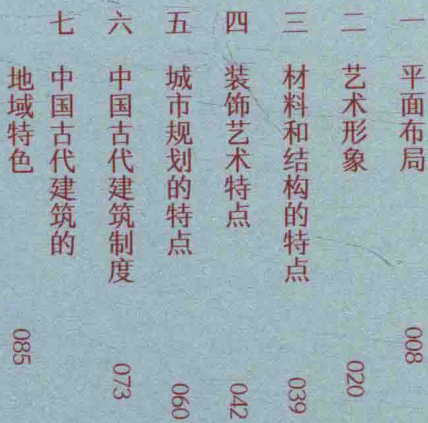 一 平面布局 008
二 艺术形象 020
三 材料和结构的特点 039
四 装饰艺术特点 042
五 城市规划的特点 060
六 中国古代建筑制度 073
七 中国古代建筑的
地域特色 085